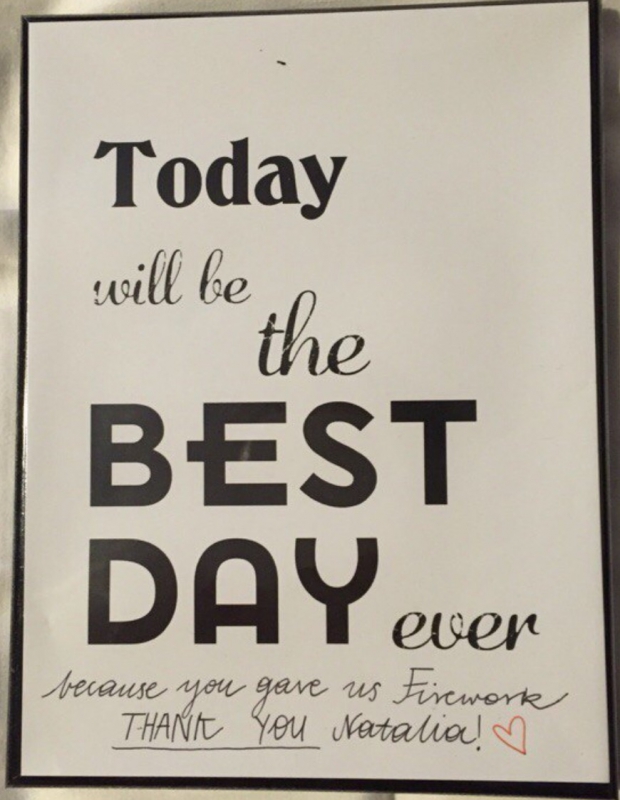 Today
will be
the
BEST
DAY ever
because you gave us Firework
THANK YOU Natalia!